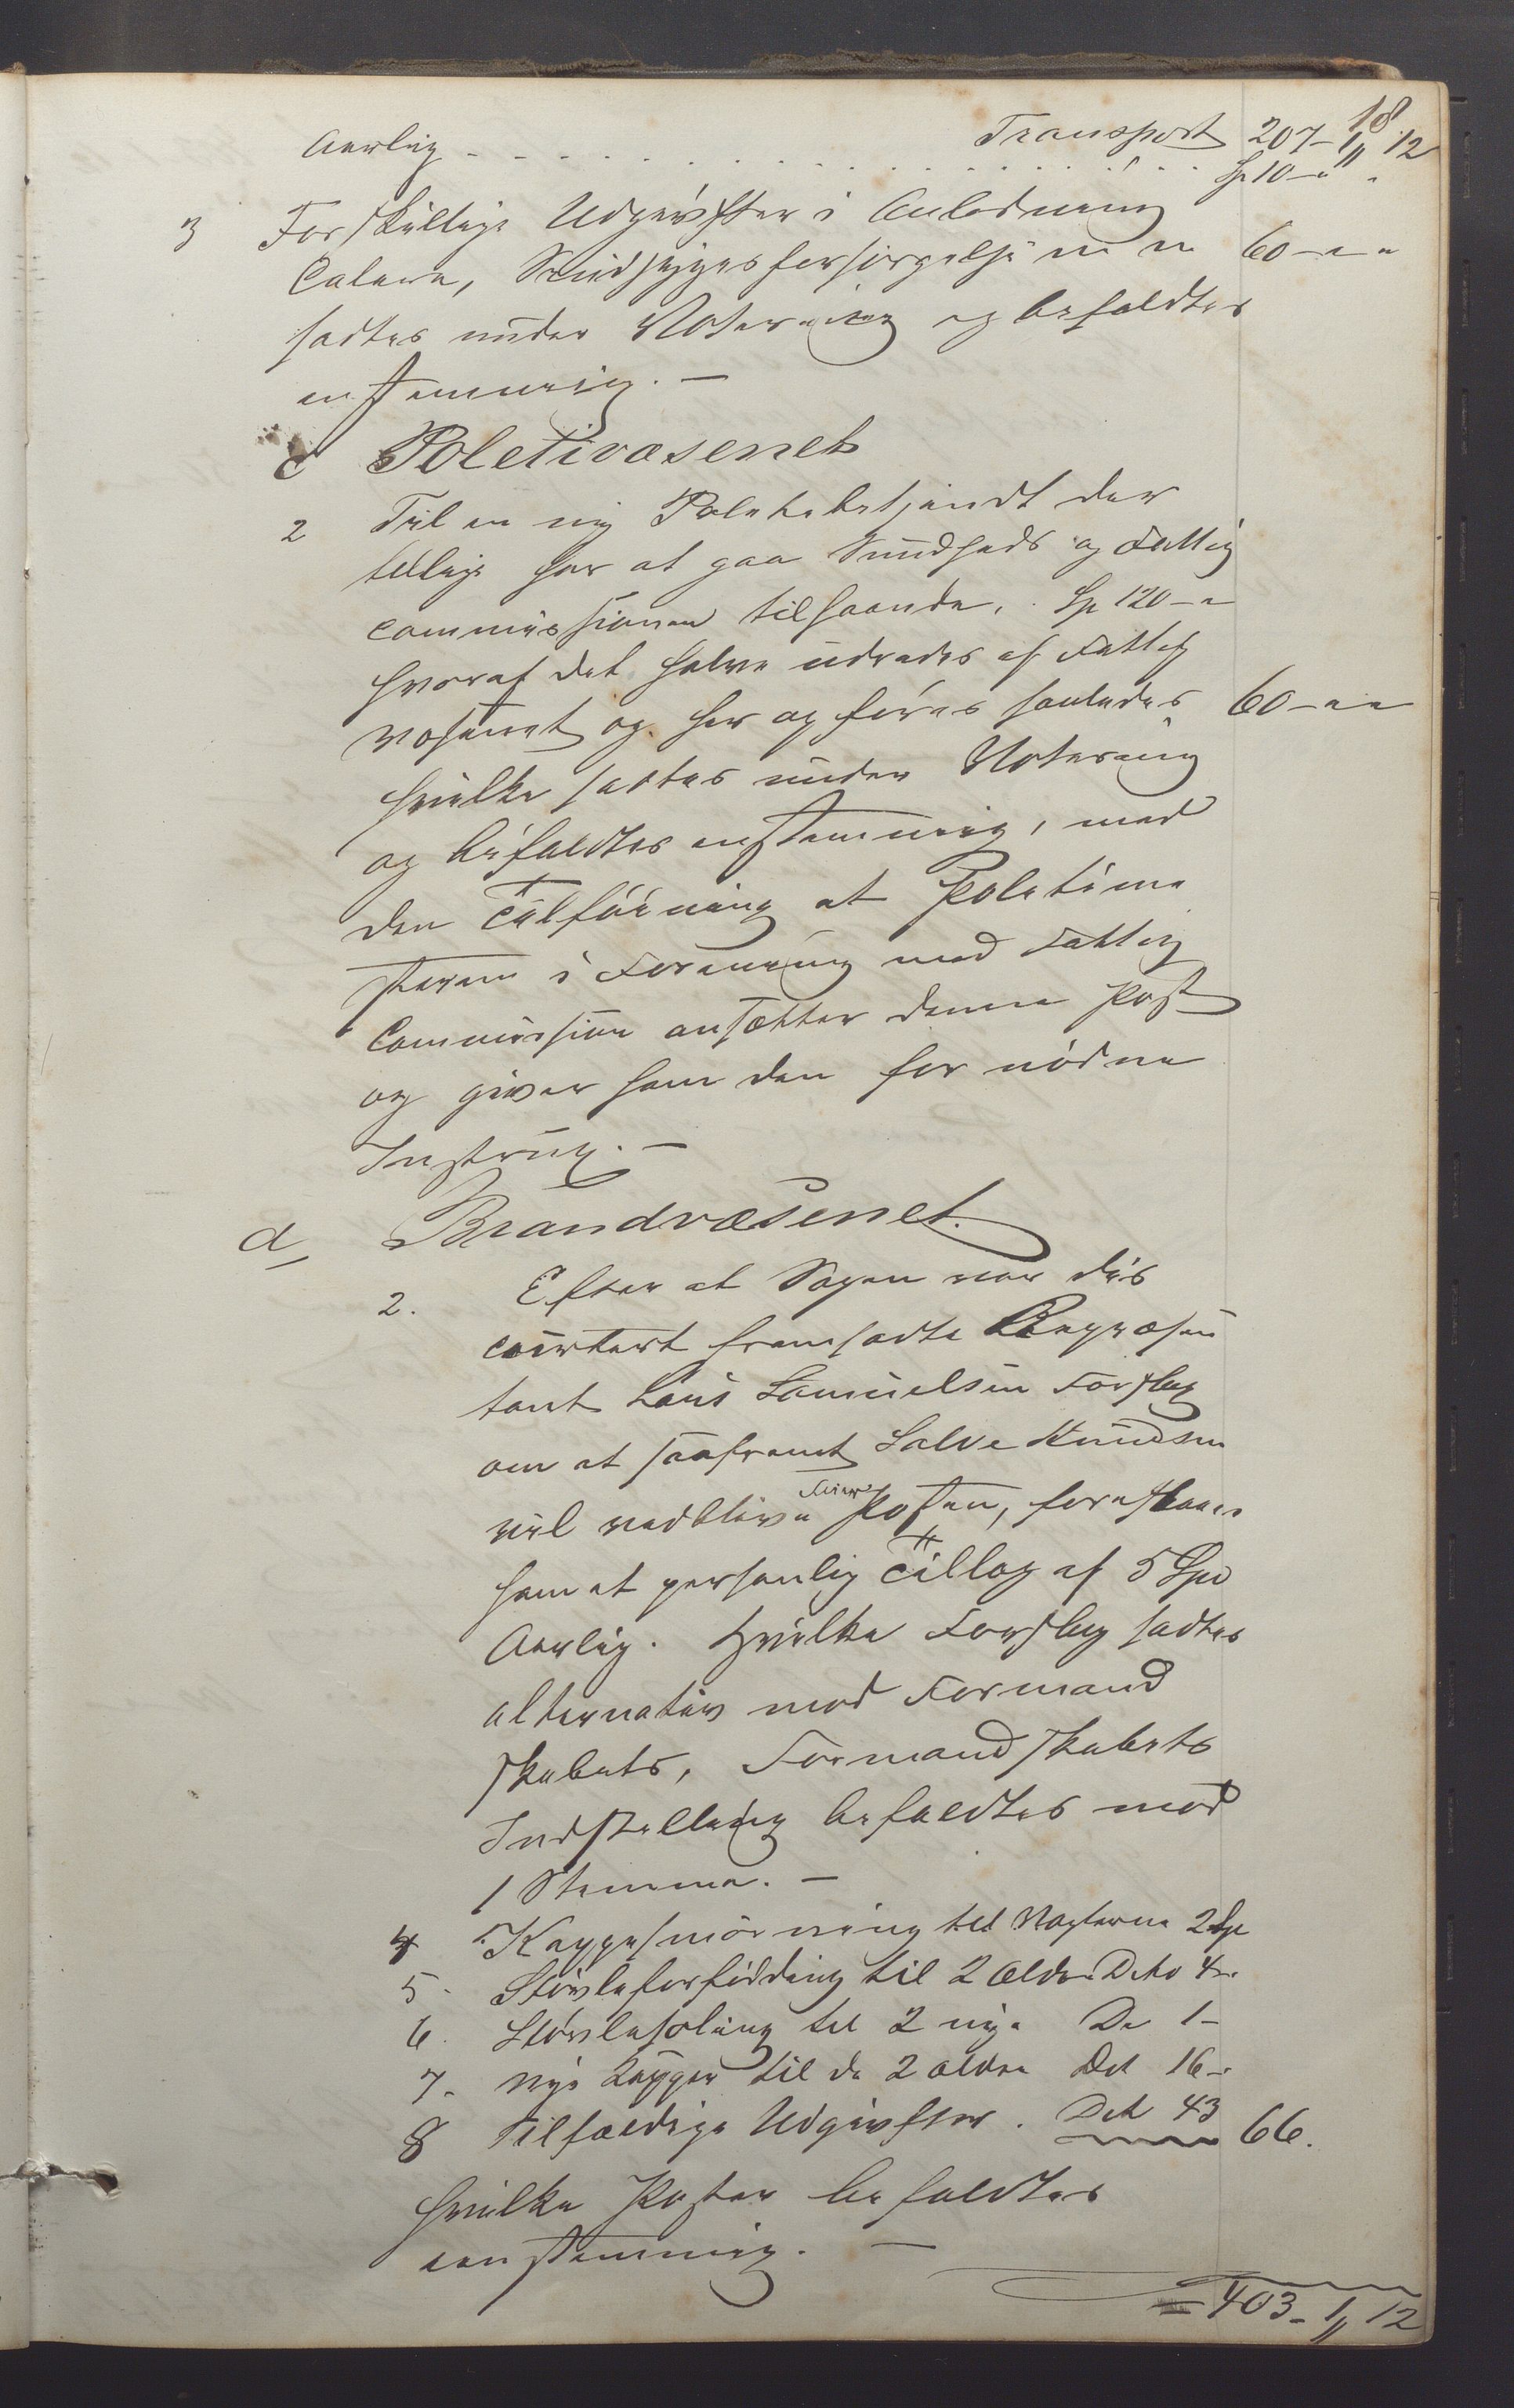 18
Transport 207-1,, 12
Aarlig - - - - - - - - - - - - - Sp 10 - " "
3 Forskjellige Udgivfter i Anledning
Colera, Sindsygesforsørgelse m m 60 - " "
sattes under Votering og befaldtes
enstemmig. -
c Poletivæsenet
2 Til en ny Poletibetjendt der
tillige har at gaa Sundheds og Fattig
commissionen tilhaande, . Sp 120 - "
hvoraf det halve udredes af Fattig
vesenet og her opføres saaledes 60 - " "
hvilke sattes under Votering
og bifaldtes enstemmig, med
den Tilføining at Poletime
steren i Forening med Fattig
Commission ansætter denne Post
og giver ham den fornødne
Instrux. -
d, Brandvæsenet.
2. Efter at Sagen var dis
courtert fremsadte Repræsen
tant Lars Samuelsen Forslag
om at saaframt Salve Knudsen
vil vedblive Feier Posten, foreslaaes
ham et personlig Tillæg af 5 Spd
Aarlig. Hvilke Forslag sadtes
alternativ mod Formand
skabets, Formandskabets
Indstelling befaldtes mod
1 Stemme. -
4 Kappesmørning til Vægterne 2 Sp
5. Støvleforfødding til 2 Ældre Deto 4 -
6. Støvlesoling til 2 nye De 1 -
7. nye Kapper til de 2 ældre Det 16 -
8 Tilfældige Udgivfter. Det 43 66.
hvilke Poster befaldtes
eenstemmig. -
= 403 - 1,, 12